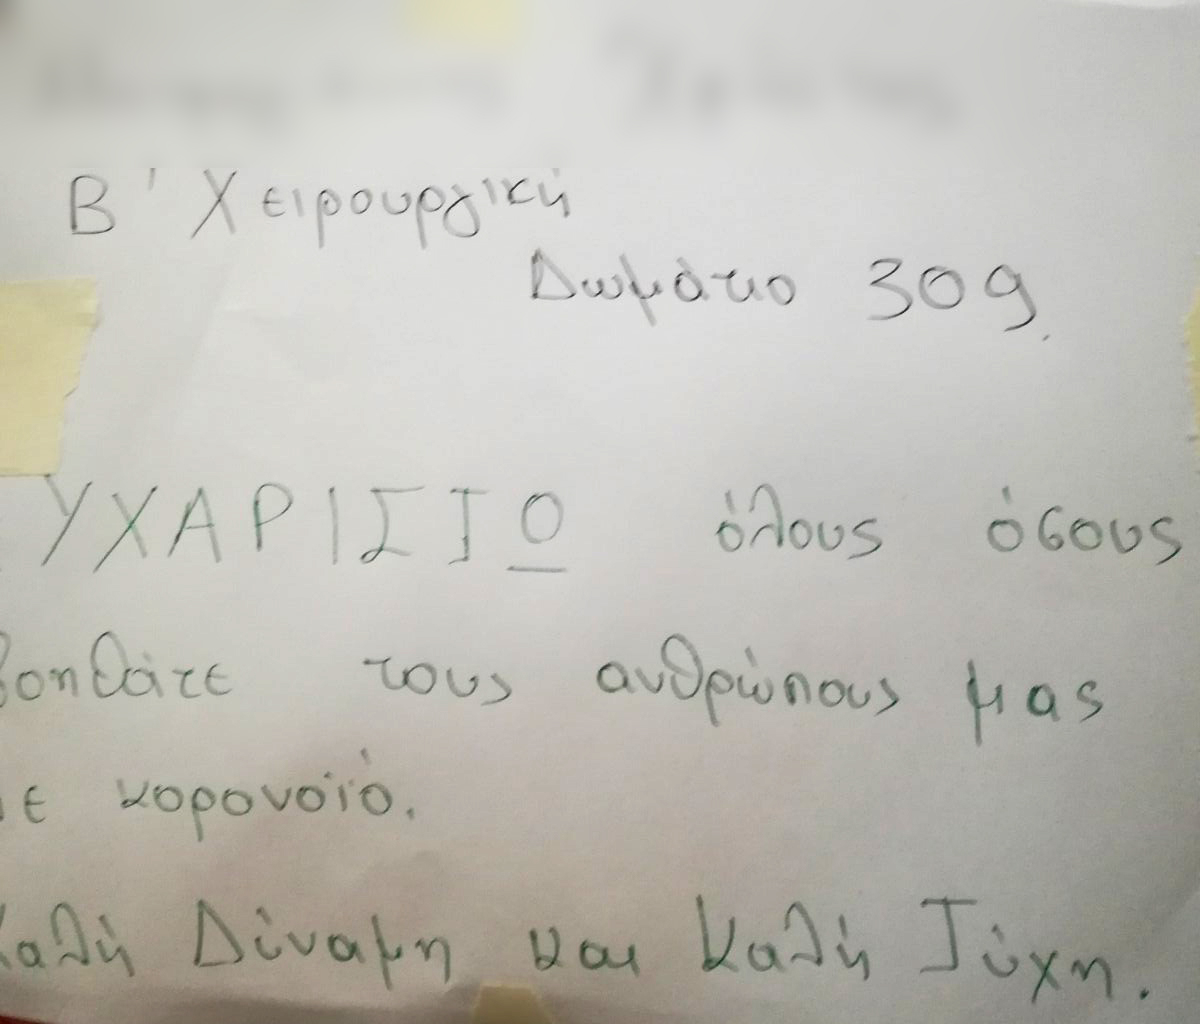 Β' Χειρουργική
Δωμάτιο 309.
ΥΧΑΡΙΣΤΩ όλους όσους
βοηθάτε τους ανθρώπους μας
με κορονοϊό.
Καλή Δύναμη και Καλή Τύχη.